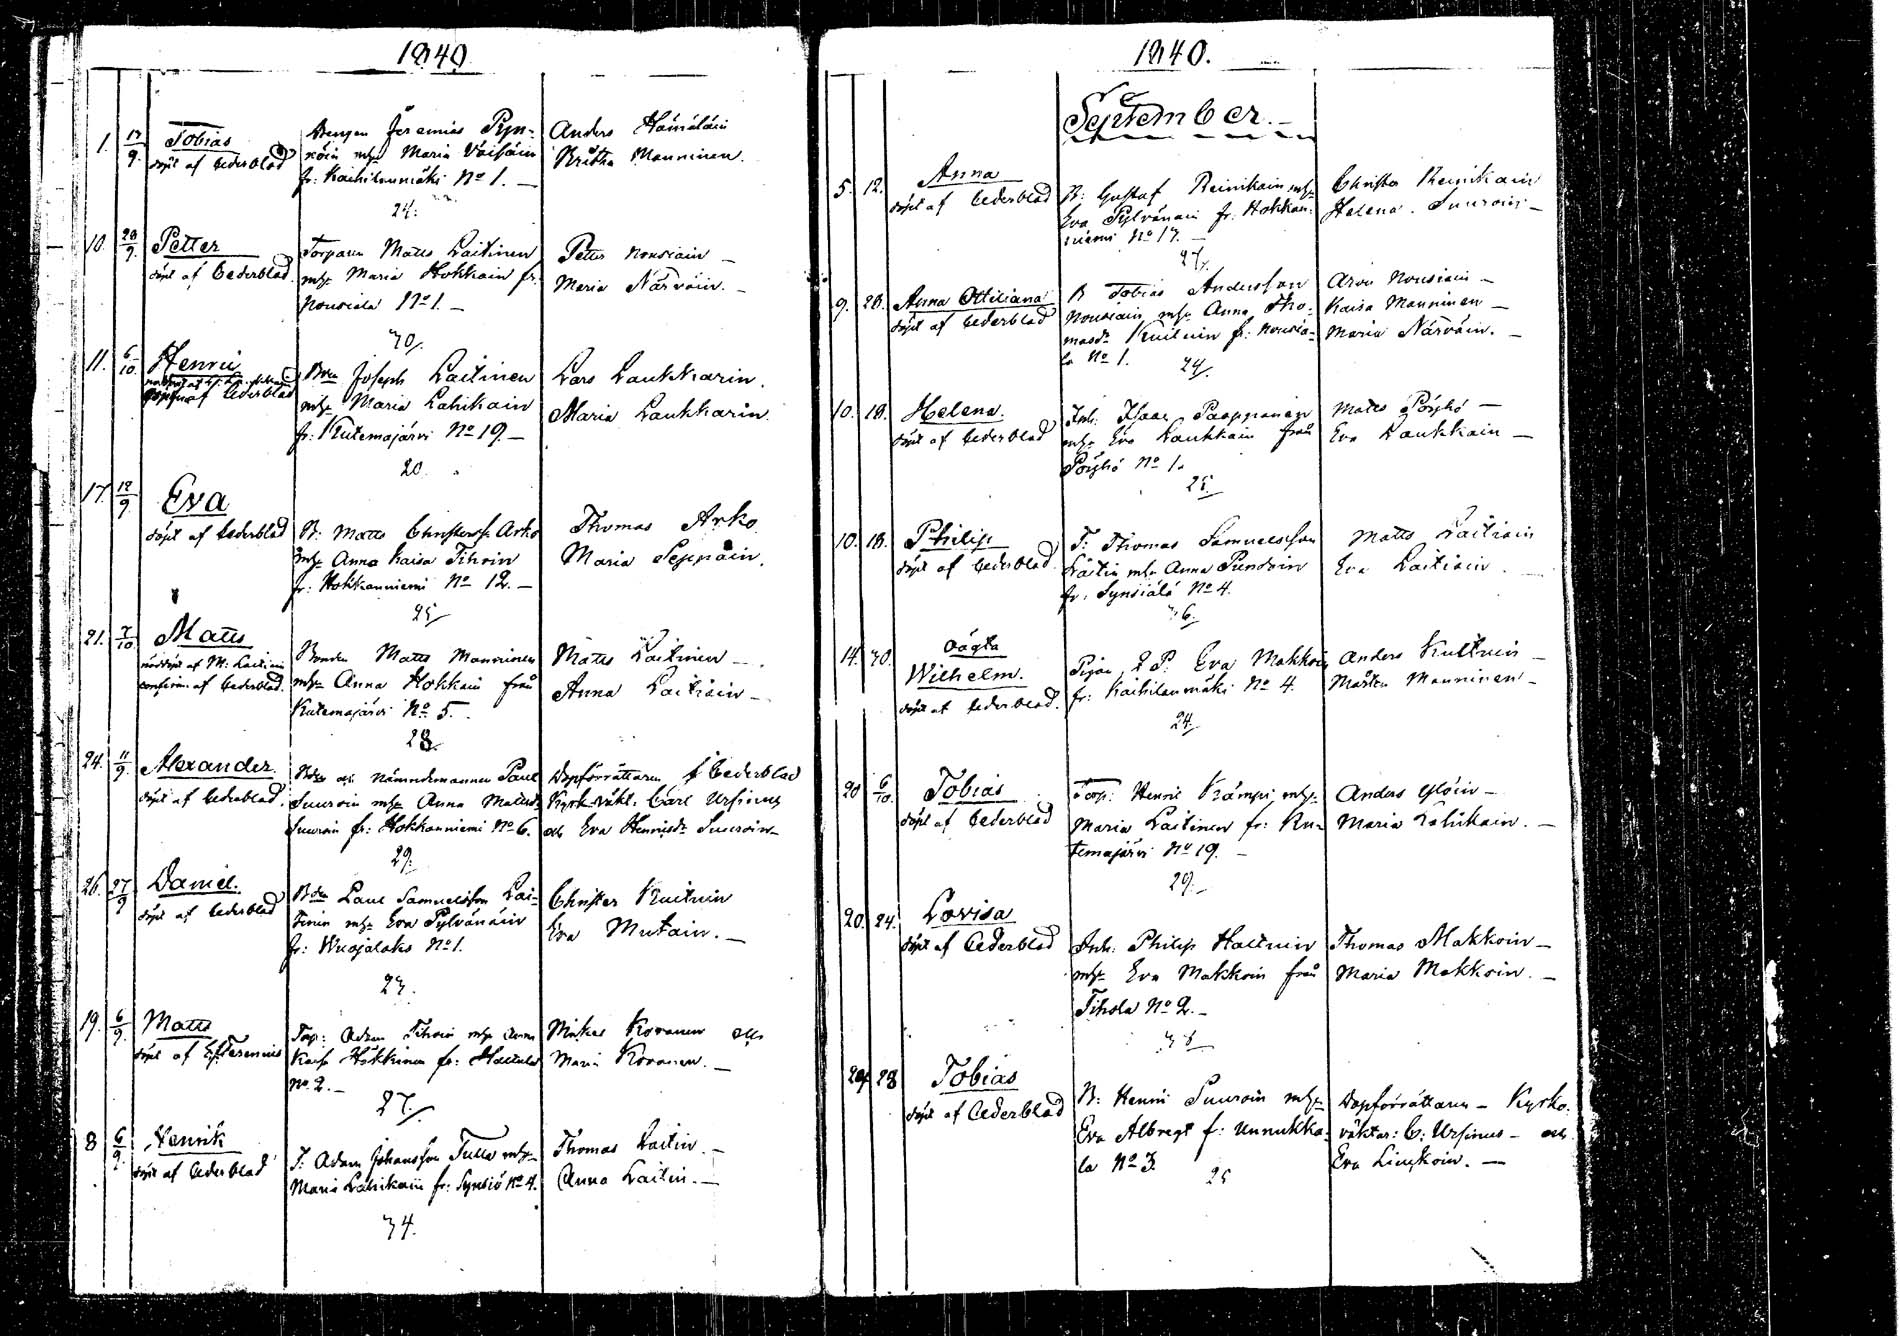 1840
1. 13/9. Tobias
döpt af Cederblad
Drengen Jeremias Pyn-
nöin mhu Maria Väisäin
fr: Kaihilanmäki No 1. —
24.
Anders Hämäläin
Kristina Manninen.
10. 20/9. Petter
döpt af Cederblad.
Torparen Matts Laitinen
mhu Maria Hokkain fr.
Nousiala No 1. —
30/.
Petter Nousiain —
Maria Närväin. —
11. 6/10. Henric
döpt af Cederblad
Bdn Joseph Laitinen
mhu Maria Lahikain
fr: Kutemajärvi No 19. —
20.
Lars Laukkarin.
Maria Laukkarin.
17. 12/9. Eva
döpt af Cederblad
B: Matts Christerss. Arko
mhu Anna Kaisa Tihoin
fr: Hokkanniemi No 12. —
25/
Thomas Arko
Maria Seppäin.
21. 7/10. Matts
nöddöpt af M: Laitiain
confirm. af Cederblad.
Bonden Matts Manninen
mhu Anna Hokkain från
Kutemajärvi No 5. —
28.
Matts Laitinen —
Anna Laitiain —
24. 11/9. Alexander.
döpt af Cederblad.
Bdn och Nämndemannen Paul
Suuroin mhu Anna Mattsd.
Suuroin fr: Hokkanniemi No 6.
29.
Dopförrättaren f Cederblad
Kyrk.väkt. Carl Ursinus
och Eva Henricsdr Suuroin —
26. 27/9 Daniel.
döpt af Cederblad
Bdn Paul Samuelsson Lai-
tinin mhu Eva Pylvänäin
fr: Wuojalaks No 1.
23.
Christer Kuituin
Eva Mutain. —
19. 6/9. Matts
döpt af Hj: Ferenius
Torp: Adam Tihoin mhu Anna
Kaisa Häkkinen fr: Haltula
No 2. —
27./
Mickel Kovanen och
Maria Kovanen. —
8 6/9. Henrik
döpt af Cederblad
T: Adam Johansson Tulla mhu
Maria Lahikain fr: Synsiö No 4.
34.
Thomas Laitin. —
Anna Laitin. —
1840.
September. —
5. 12. Anna
döpt af Cederblad
B: Gustaf Reinikain mhu
Eva Pylvänäin fr: Hokkan-
niemi No 17. —
27/.
Christer Reinikain
Helena Suuroin —
9. 20. Anna Ottiliana
döpt af Cederblad
B Tobias Andersson
Nousiain mhu Anna Tho-
masdr Kuituin fr: Nousia-
la No 1.
24/.
Arvi Nousiain —
Kaisa Manninen —
Maria Närväin. —
10. 18. Helena.
döpt af Cederblad
Inh: Isaac Paappanen
mhu Eva Laukkain från
Pöyhö No 1.
25/
Matts Pöyhö —
Eva Laukkain —
10. 18. Philip
döpt af Cederblad.
T: Thomas Samuelsson
Laitin mhu Anna Pundoin
fr: Synsiälä No 4.
36.
Matts Laitiain
Eva Laitiain. —
14. 30. oägta
Wilhelm.
döpt af Cederblad.
Pigan L. P. Eva Makkoin
fr: Kaihilanmäki No 4.
24/.
Anders Kuituin —
Mårten Manninen —
20 6/10. Tobias
döpt af Cederblad
Torp: Henric Krämpi mhu
Maria Laitinen fr: Ku-
temajärvi No 19. —
29. —
Anders Ylöin —
Maria Lahikain. —
20. 24. Lovisa
döpt af Cederblad
Inh: Philip Haltuin
mhu Eva Makkoin från
Tihola No 2. —
38
Thomas Makkoin —
Maria Makkoin. —
24 28 Tobias
döpt af Cederblad
B: Henric Suuroin mhu
Eva Albregt f: Unnukka-
la No 3.
25
Dopförrättaren — Kyrko-
väktar: C: Ursinus — och
Eva Liuskoin. —